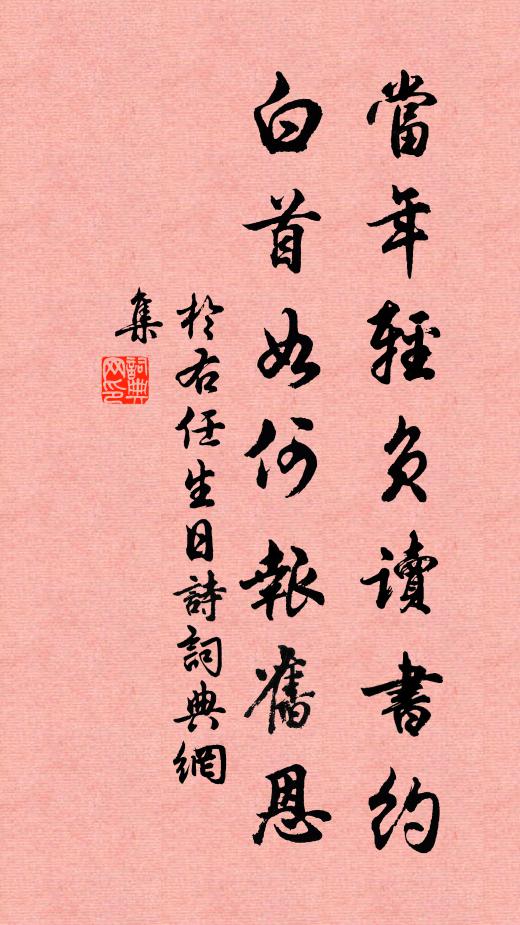 當年輕負讀書約
白首如何報舊恩
於右任生日詩詞典網
集
詞典
网印